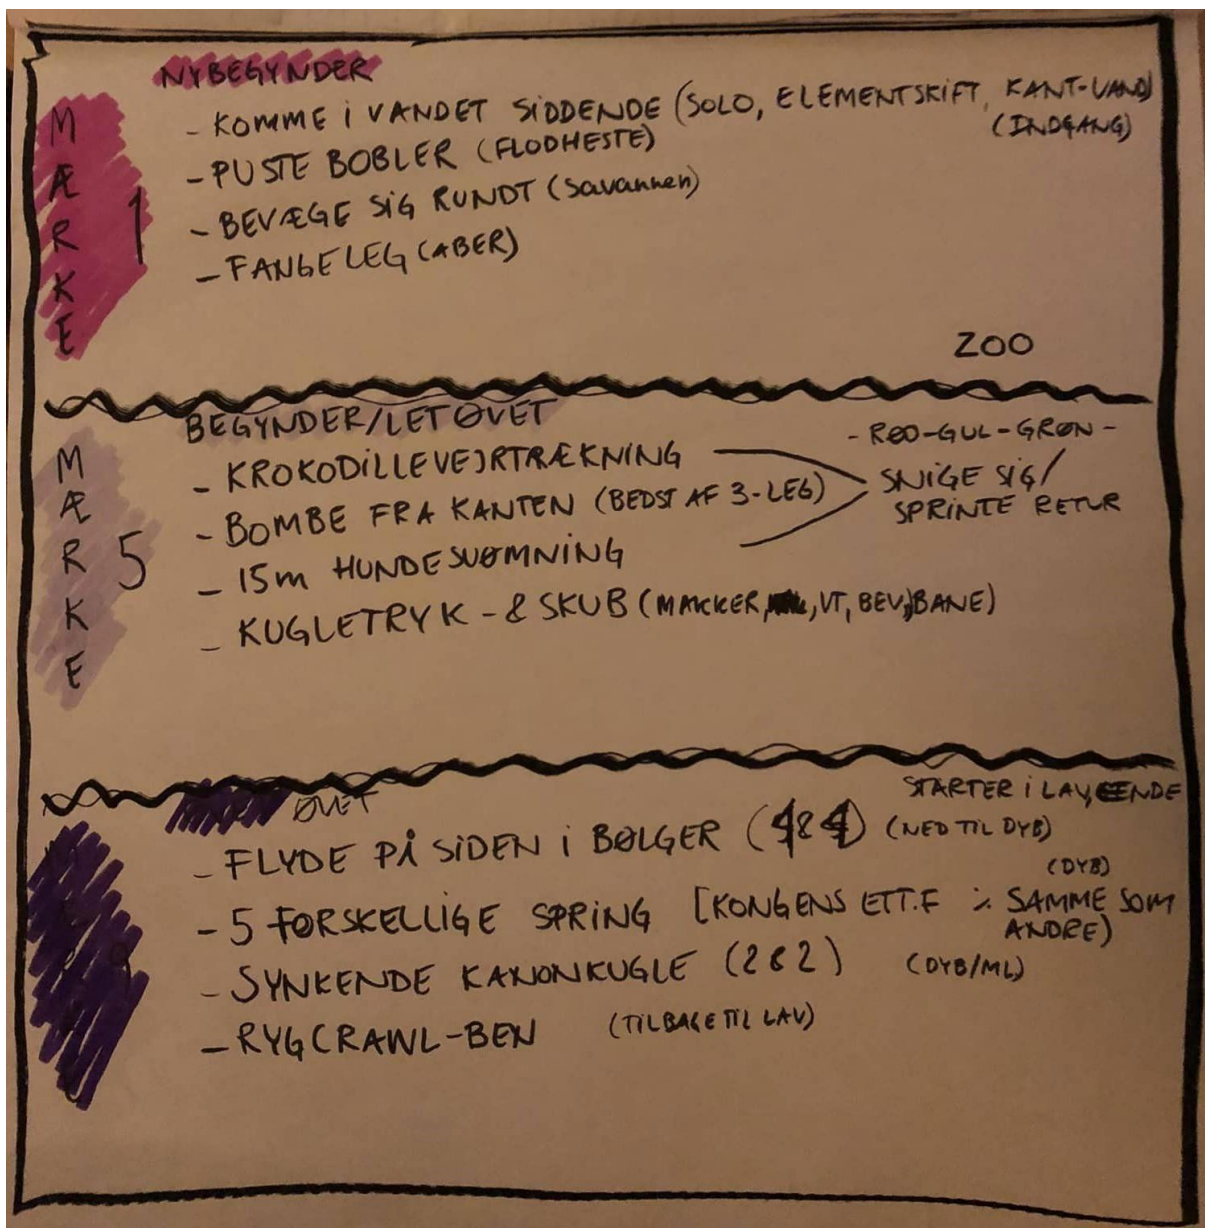 NYBEGYNDER
MÆRKE 1
- KOMME I VANDET SIDDENDE (SOLO, ELEMENTSKIFT, KANT-VAND)
(INDGANG)
- PUSTE BOBLER (FLODHESTE)
- BEVÆGE SIG RUNDT (savannen)
- FANGELEG (ABER)
ZOO
BEGYNDER/LET ØVET
MÆRKE 5
- KROKODILLEVEJRTRÆKNING
- BOMBE FRA KANTEN (BEDST AF 3-LEG)
- 15m HUNDESVØMNING
- KUGLETRYK - & SKUB (MAKKER, VT, BEV, BANE)
- RØD-GUL-GRØN -
SNIGE SIG/
SPRINTE RETUR
ØVET
STARTER I LAV ENDE
- FLYDE PÅ SIDEN I BØLGER (4&4) (NED TIL DYB)
(DYB)
- 5 FORSKELLIGE SPRING [KONGENS EFT.F % SAMME SOM
ANDRE)
- SYNKENDE KANONKUGLE (2&2) (DYB/ML)
- RYGCRAWL-BEN (TILBAGE TIL LAV)